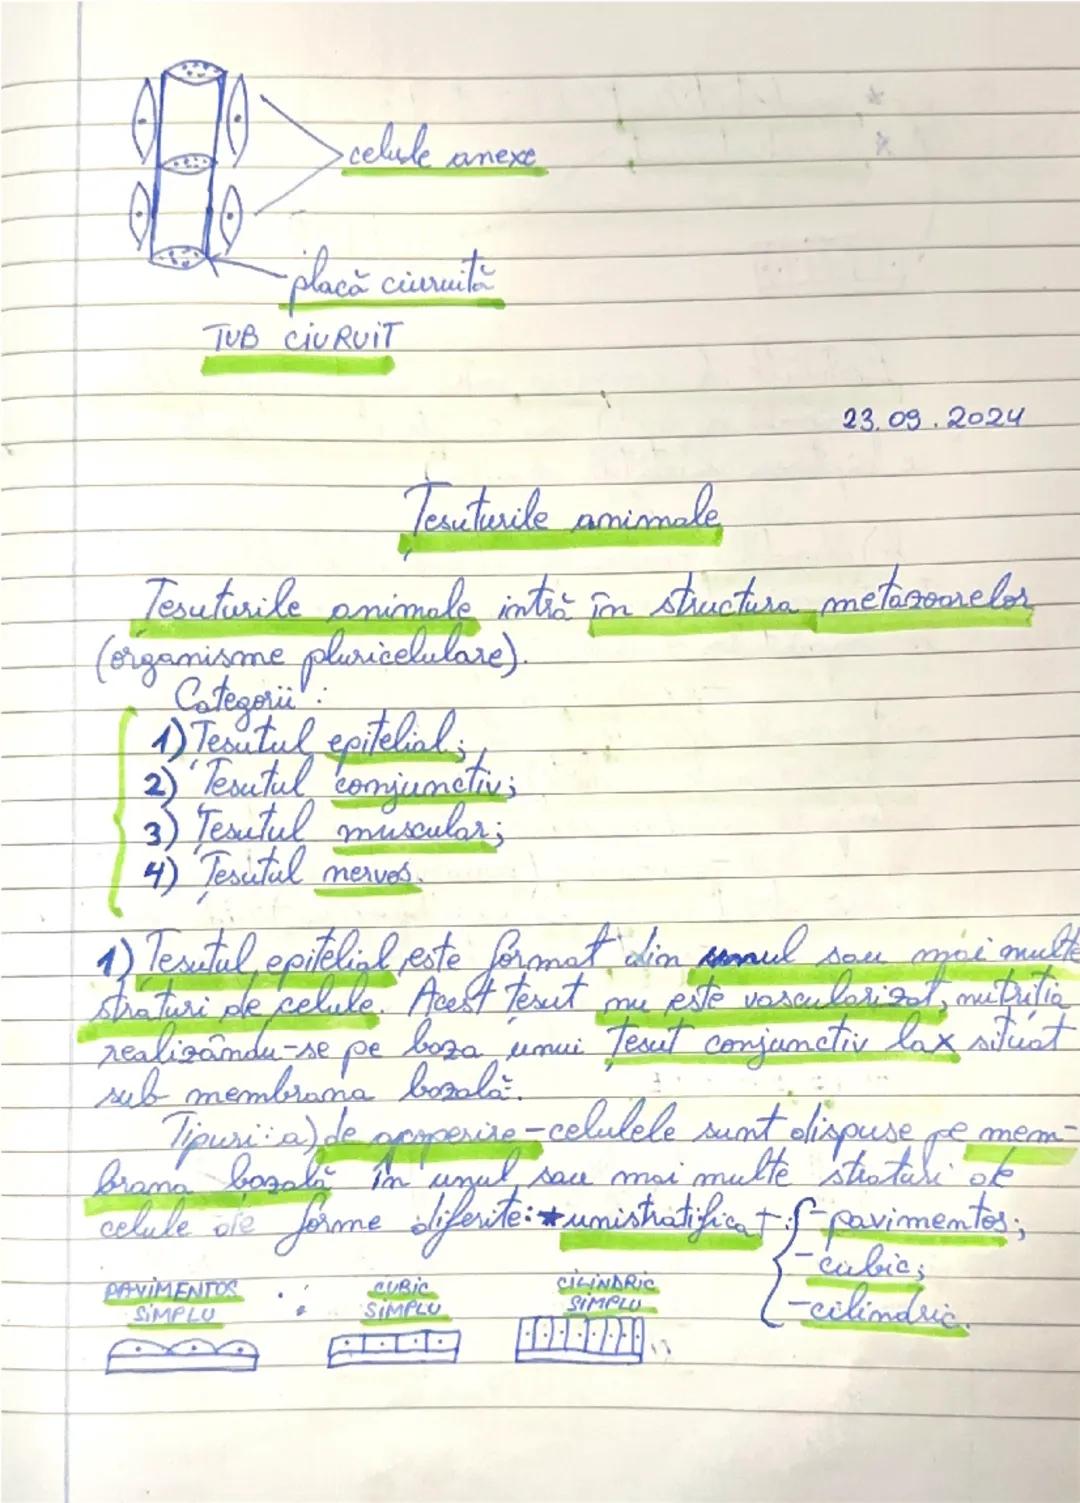 celule anexe
placă ciuruită
TUB CIURUIT
23.09.2024
Țesuturile animale
Țesuturile animale intră în structura metazoarelor
(organisme pluricelulare).
Categorii:
1) Țesutul epitelial;
2) Țesutul conjunctiv;
3) Țesutul muscular;
4) Țesutul nervos.
1) Țesutul epitelial este format din unul sau mai multe
straturi de celule. Acest țesut nu este vascularizat, nutriția
realizându-se pe baza unui țesut conjunctiv lax situat
sub membrana bazală.
Tipuri: a) de acoperire - celulele sunt dispuse pe mem-
brana bazală în unul sau mai multe straturi de
celule de forme diferite: * unistratificat: - pavimentos;
- cubic;
- cilindric.
PAVIMENTOS SIMPLU
CUBIC SIMPLU
CILINDRIC SIMPLU